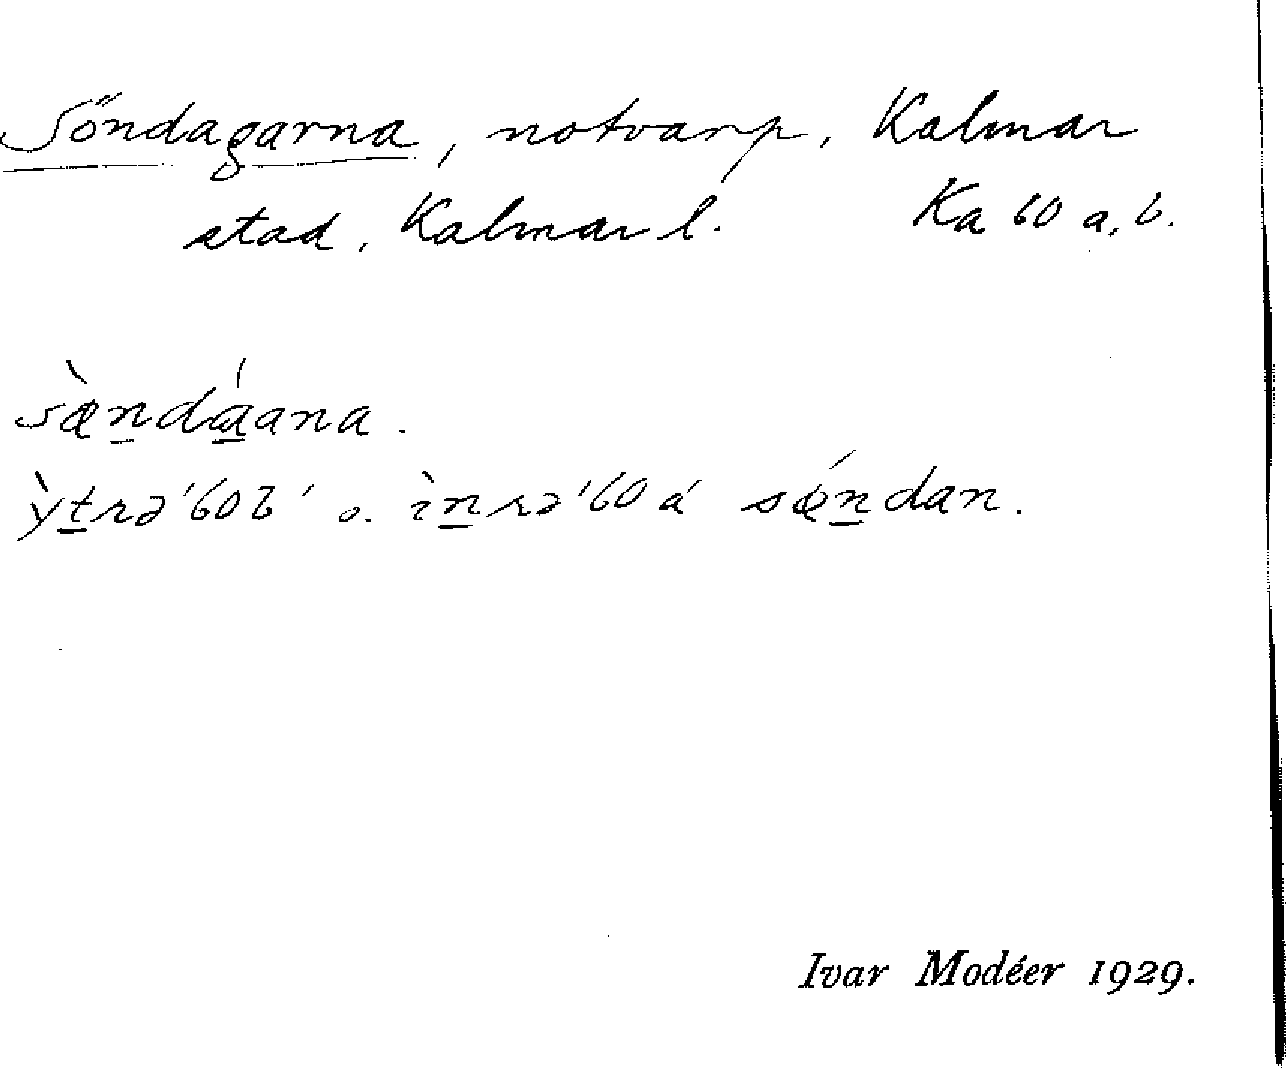 Söndagarna, notvarp, Kalmar
stad, Kalmar l. Ka 60 a, b.
sœ̀ṉdá̱ana.
ỳṯrə '60b' o. ìṉrə '60a' sœ́ṉdan.
Ivar Modéer 1929.